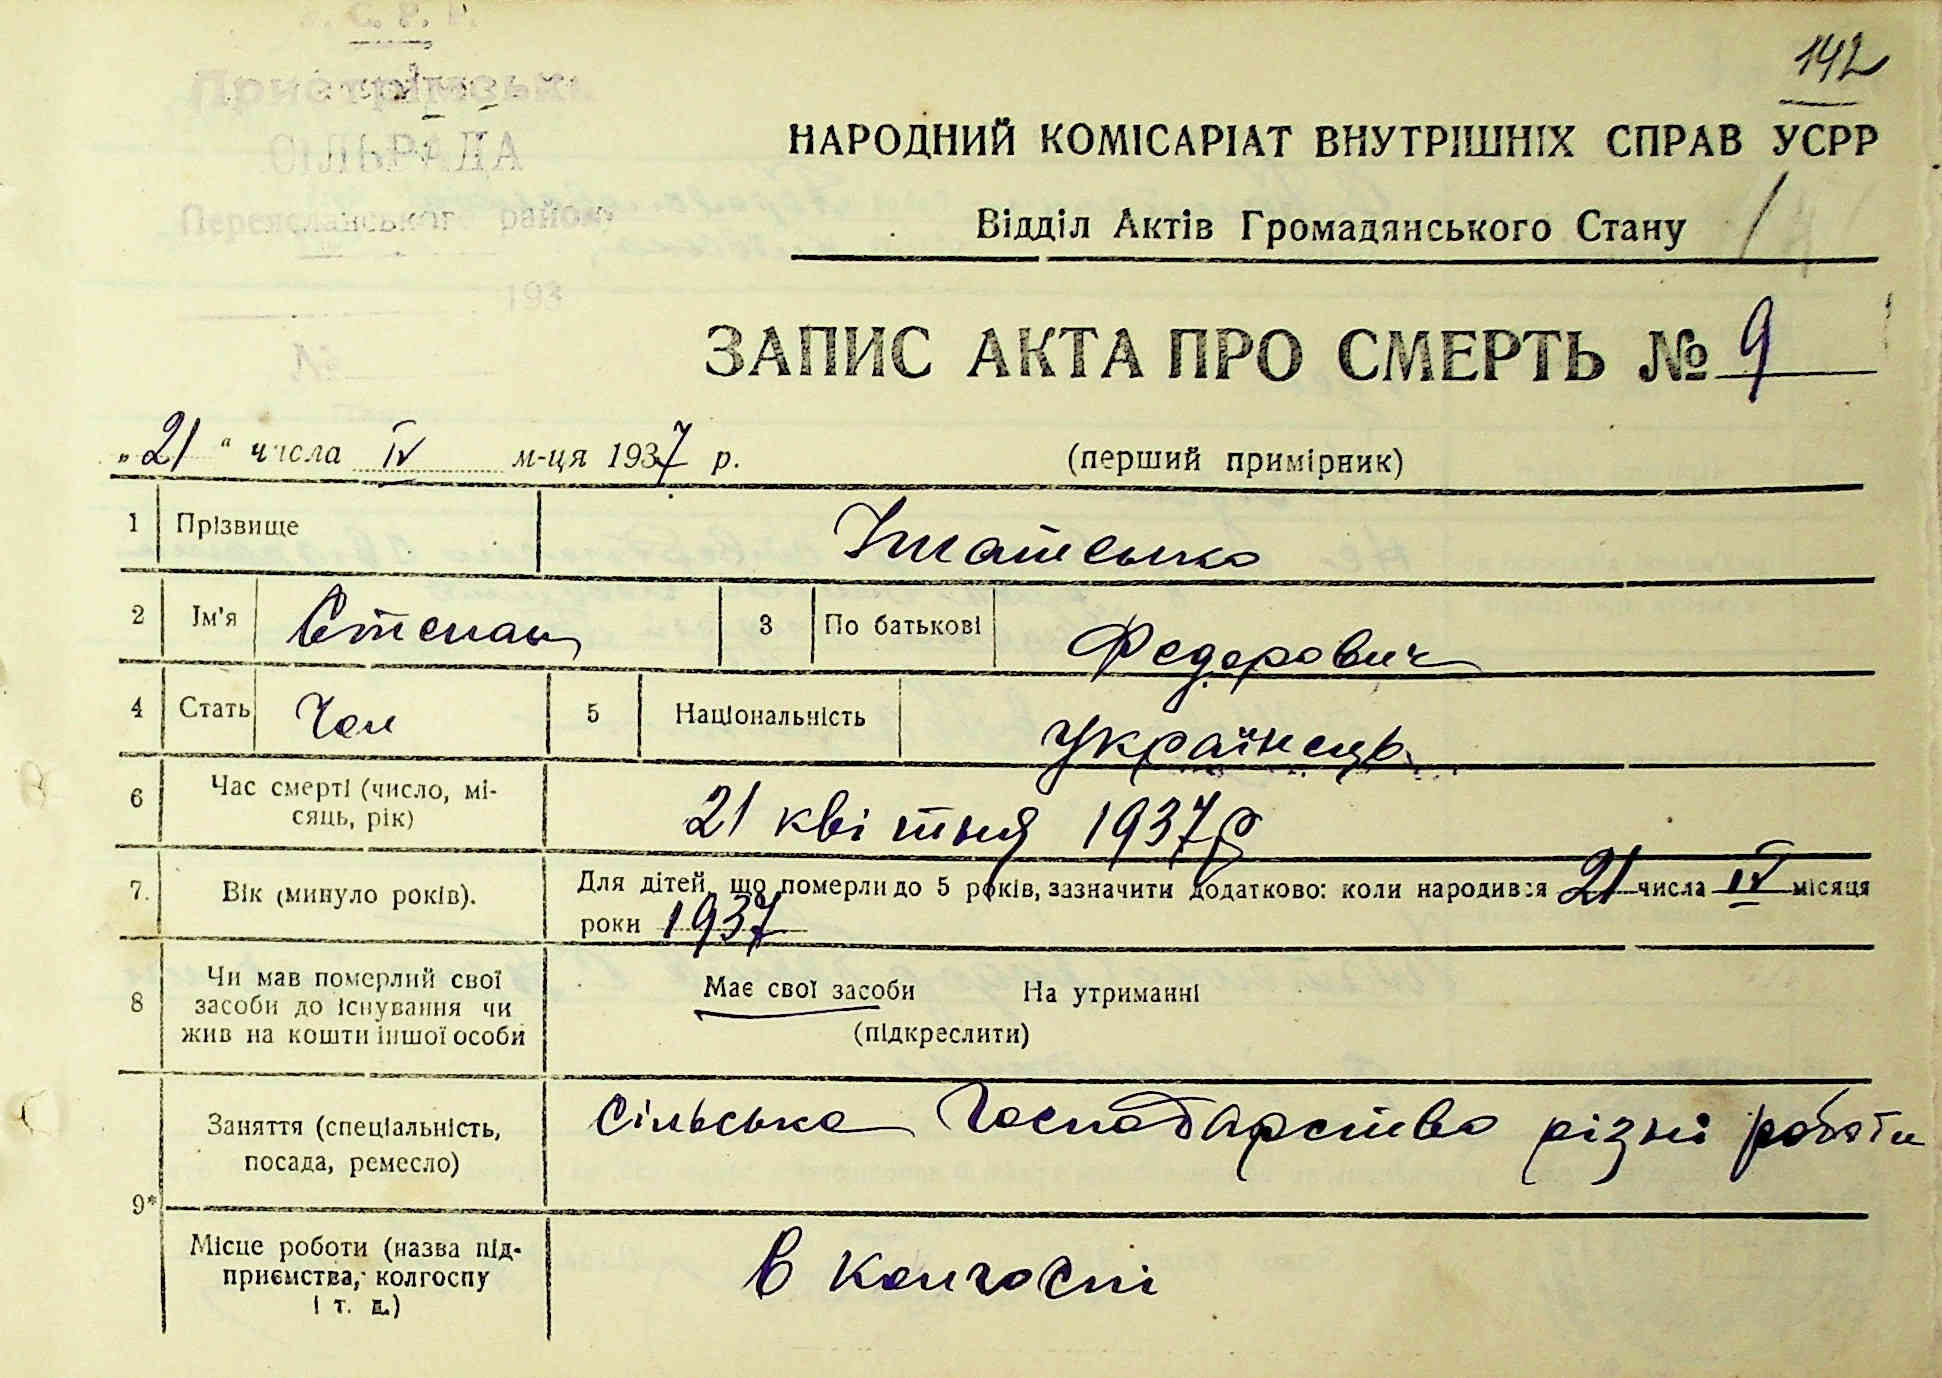 У. С. Р. Р.
142
Пристромська
СІЛЬРАДА
Переяславського району
193
№
НАРОДНИЙ КОМІСАРІАТ ВНУТРІШНІХ СПРАВ УСРР
Відділ Актів Громадянського Стану
ЗАПИС АКТА ПРО СМЕРТЬ № 9
„21“ числа IV м-ця 1937 р. (перший примірник)
1 Прізвище Ігнатенко
2 Ім'я Степан 3 По батькові Федорович
4 Стать Чол 5 Національність Українець
6 Час смерті (число, мі-
сяць, рік) 21 квітня 1937 р
7. Вік (минуло років). Для дітей, що померли до 5 років, зазначити додатково: коли народився 21 числа IV місяця
роки 1937
8 Чи мав померлий свої
засоби до існування чи
жив на кошти іншої особи
Має свої засоби На утриманні
(підкреслити)
9* Заняття (спеціальність,
посада, ремесло) Сільське господарство різні роботи
Місце роботи (назва під-
приємства, колгоспу
і т. д.) в колгоспі